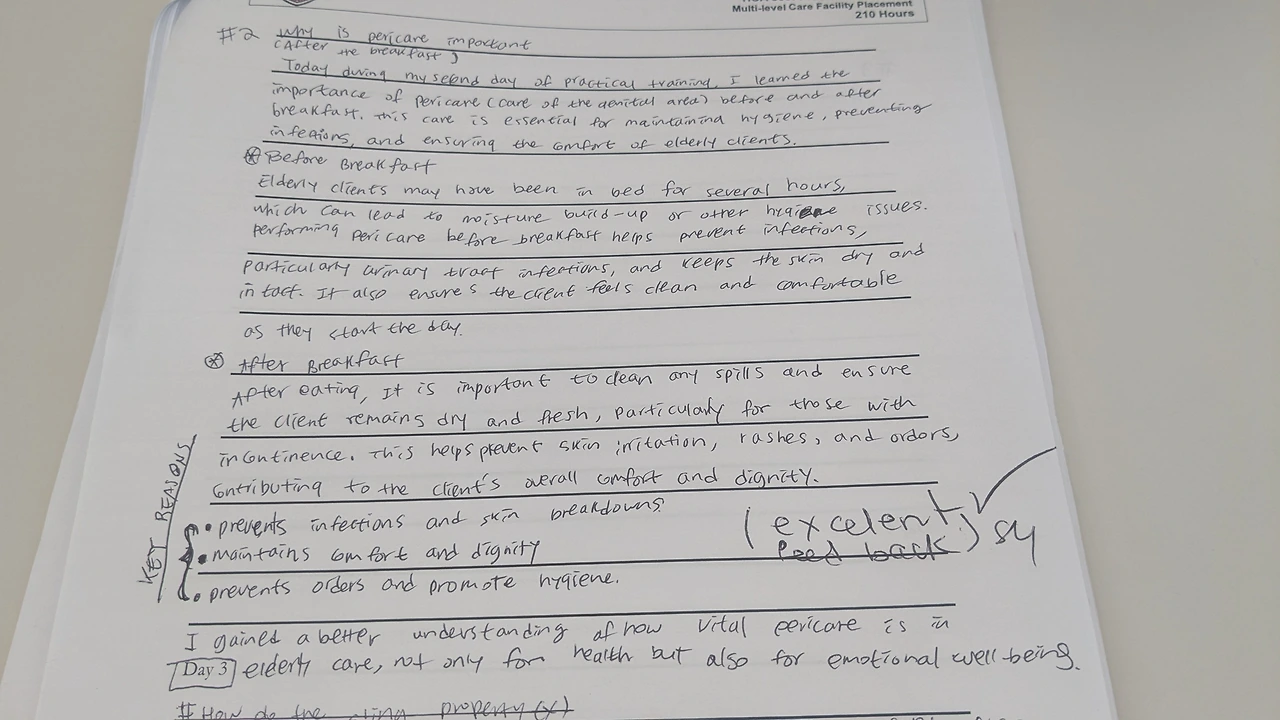 Multi-level Care Facility Placement
210 Hours
#2 Why is pericare important
(After the breakfast)
Today during my second day of practical training, I learned the
importance of pericare (care of the genital area) before and after
breakfast. This care is essential for maintaining hygiene, preventing
infections, and ensuring the comfort of elderly clients.
Before Breakfast
Elderly clients may have been in bed for several hours,
which can lead to moisture build-up or other hygiene issues.
performing pericare before breakfast helps prevent infections,
particularly urinary tract infections, and keeps the skin dry and
intact. It also ensures the client feels clean and comfortable
as they start the day.
After Breakfast
After eating, It is important to clean any spills and ensure
the client remains dry and fresh, particularly for those with
incontinence. This helps prevent skin irritation, rashes, and ordors,
contributing to the client's overall comfort and dignity.
KEY REASONS
• prevents infections and skin breakdowns
• maintains comfort and dignity
• prevents orders and promote hygiene.
(excelent
feed back)
I gained a better understanding of how vital pericare is in
Day 3 elderly care, not only for health but also for emotional well being.
# How do the property (x)